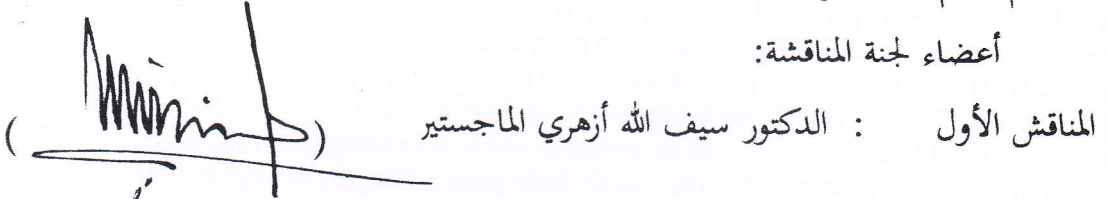 أعضاء لجنة المناقشة:
المناقش الأول : الدكتور سيف الله أزهري الماجستير ( )